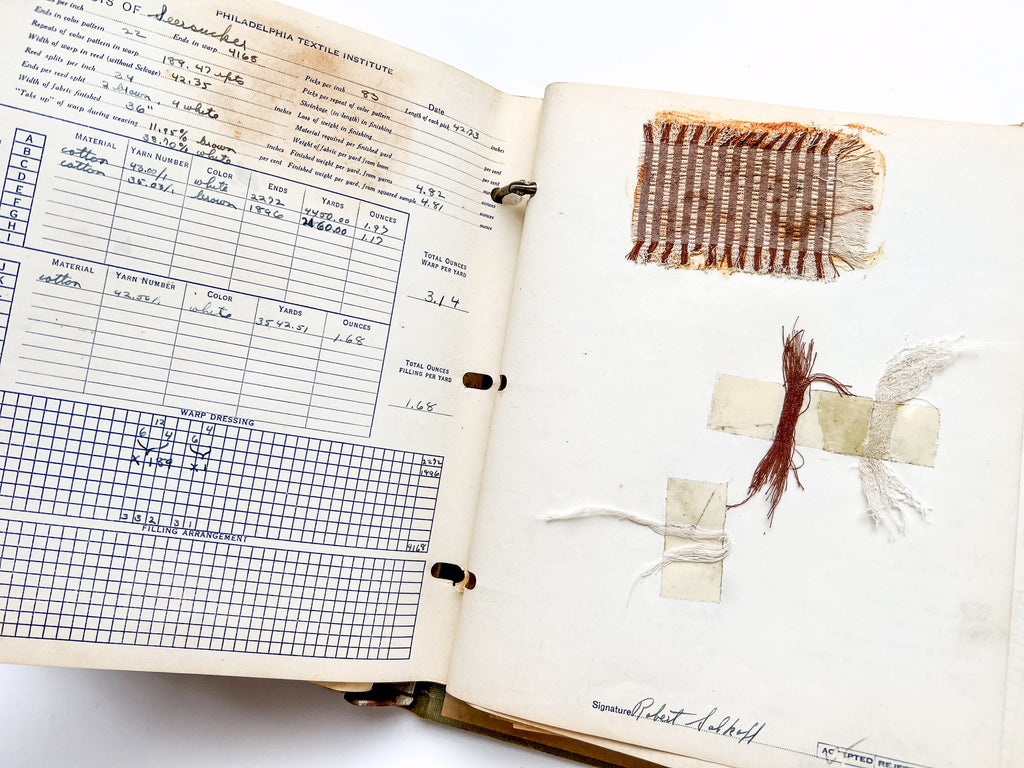 OF Seersucker
PHILADELPHIA TEXTILE INSTITUTE
Ends in color pattern 22 Ends in warp 4168
Repeats of color pattern in warp 189.47 rpts
Width of warp in reed (without Selvage) 42.35 inches
Reed splits per inch 34
Ends per reed split 2 brown, 4 white
Width of fabric finished 36" inches
"Take up" of warp during weaving 11.95% brown per cent
38.70% white
Date
Picks per inch 83 Length of each pick 42.73 inches
Picks per repeat of color pattern
Shrinkage (in length) in finishing per cent
Loss of weight in finishing per cent
Material required per finished yard ounces
Weight of fabric per yard from loom ounces
Finished weight per yard, from yarns 4.82 ounces
Finished weight per yard, from squared sample 4.81 ounces
MATERIAL YARN NUMBER COLOR ENDS YARDS OUNCES
A cotton 43.00/1 white 2272 4450.00 1.97
B cotton 35.03/1 brown 1896 2160.00 1.17
C
D
E
F
G
H
I
TOTAL OUNCES
WARP PER YARD
3.14
MATERIAL YARN NUMBER COLOR YARDS OUNCES
cotton 42.50/1 white 3542.51 1.68
TOTAL OUNCES
FILLING PER YARD
1.68
WARP DRESSING
12 4
6 4 6
X 189 X 1
2272
1896
3 5 2 3 1
4168
FILLING ARRANGEMENT
Signature Robert Solkoff